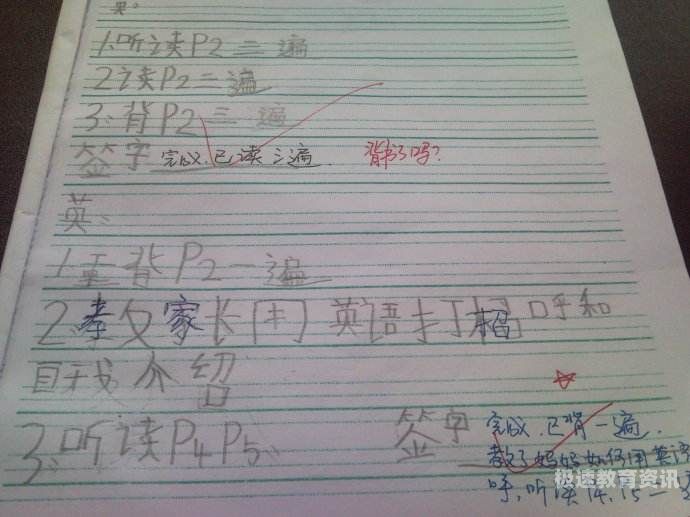 英:
1.听读P2三遍
2读P2二遍
3.背P2三遍
签字 完成.已读三遍. 背书了吗?
英:
1重背P2一遍
2.教父家长用英语打招呼和
自我介绍
3.听读P4 P5. 签字 完成.已背一遍.
教了妈妈如何用英语
呼,听读14,15一
极速教育资讯